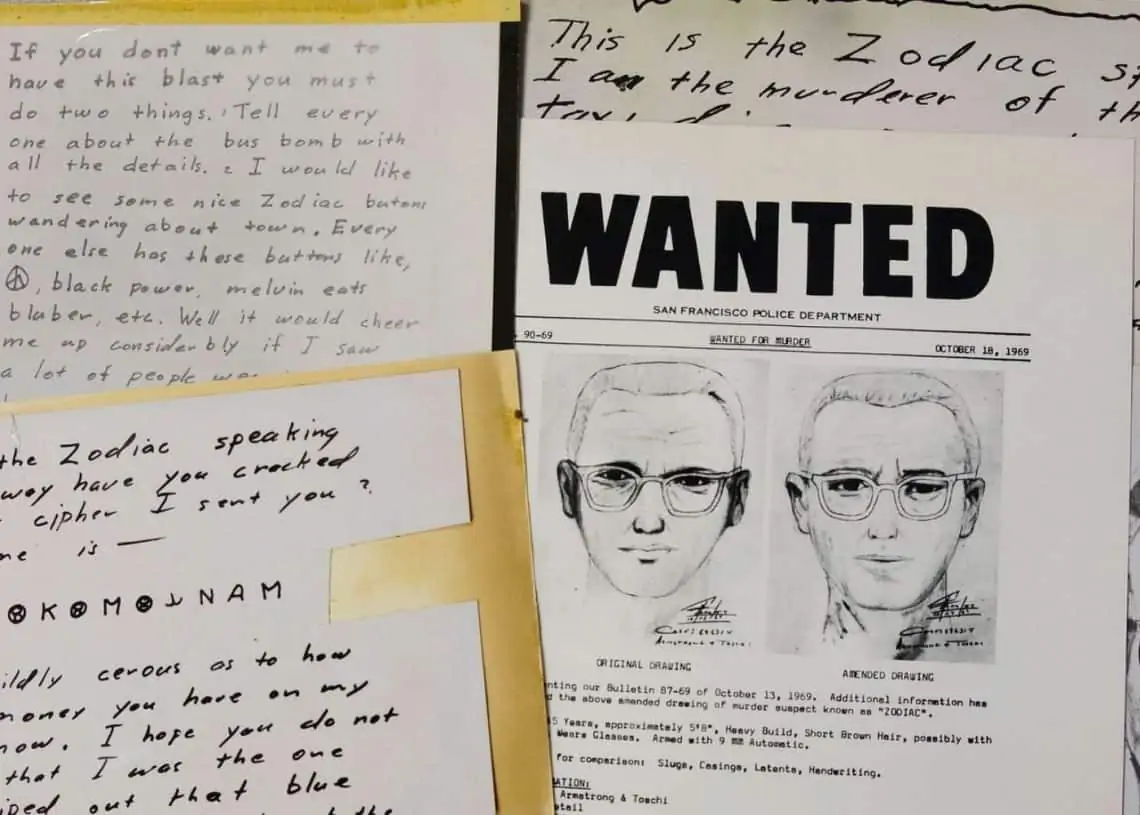 If you dont want me to
have this blast you must
do two things. Tell every
one about the bus bomb with
all the details. 2 I would like
to see some nice Zodiac butons
wandering about town. Every
one else has these buttons like,
☮, black power, melvin eats
bluber, etc. Well it would cheer
me up considerbly if I saw
a lot of people
This is the Zodiac
I am the murderer of
the Zodiac speaking
way have you cracked
cipher I sent you?
is —
K M NAM
cerous as to how
money you have on my
now. I hope you do not
that I was the one
out that blue
WANTED
SAN FRANCISCO POLICE DEPARTMENT
90-69 WANTED FOR MURDER OCTOBER 18, 1969
ORIGINAL DRAWING AMENDED DRAWING
our Bulletin 87-69 of October 13, 1969. Additional information has
the above amended drawing of murder suspect known as "ZODIAC".
Years, approximately 5'8", Heavy Build, Short Brown Hair, possibly with
Wears Glasses. Armed with 9 MM Automatic.
for comparison: Slugs, Casings, Latents, Handwriting.
Armstrong & Toschi